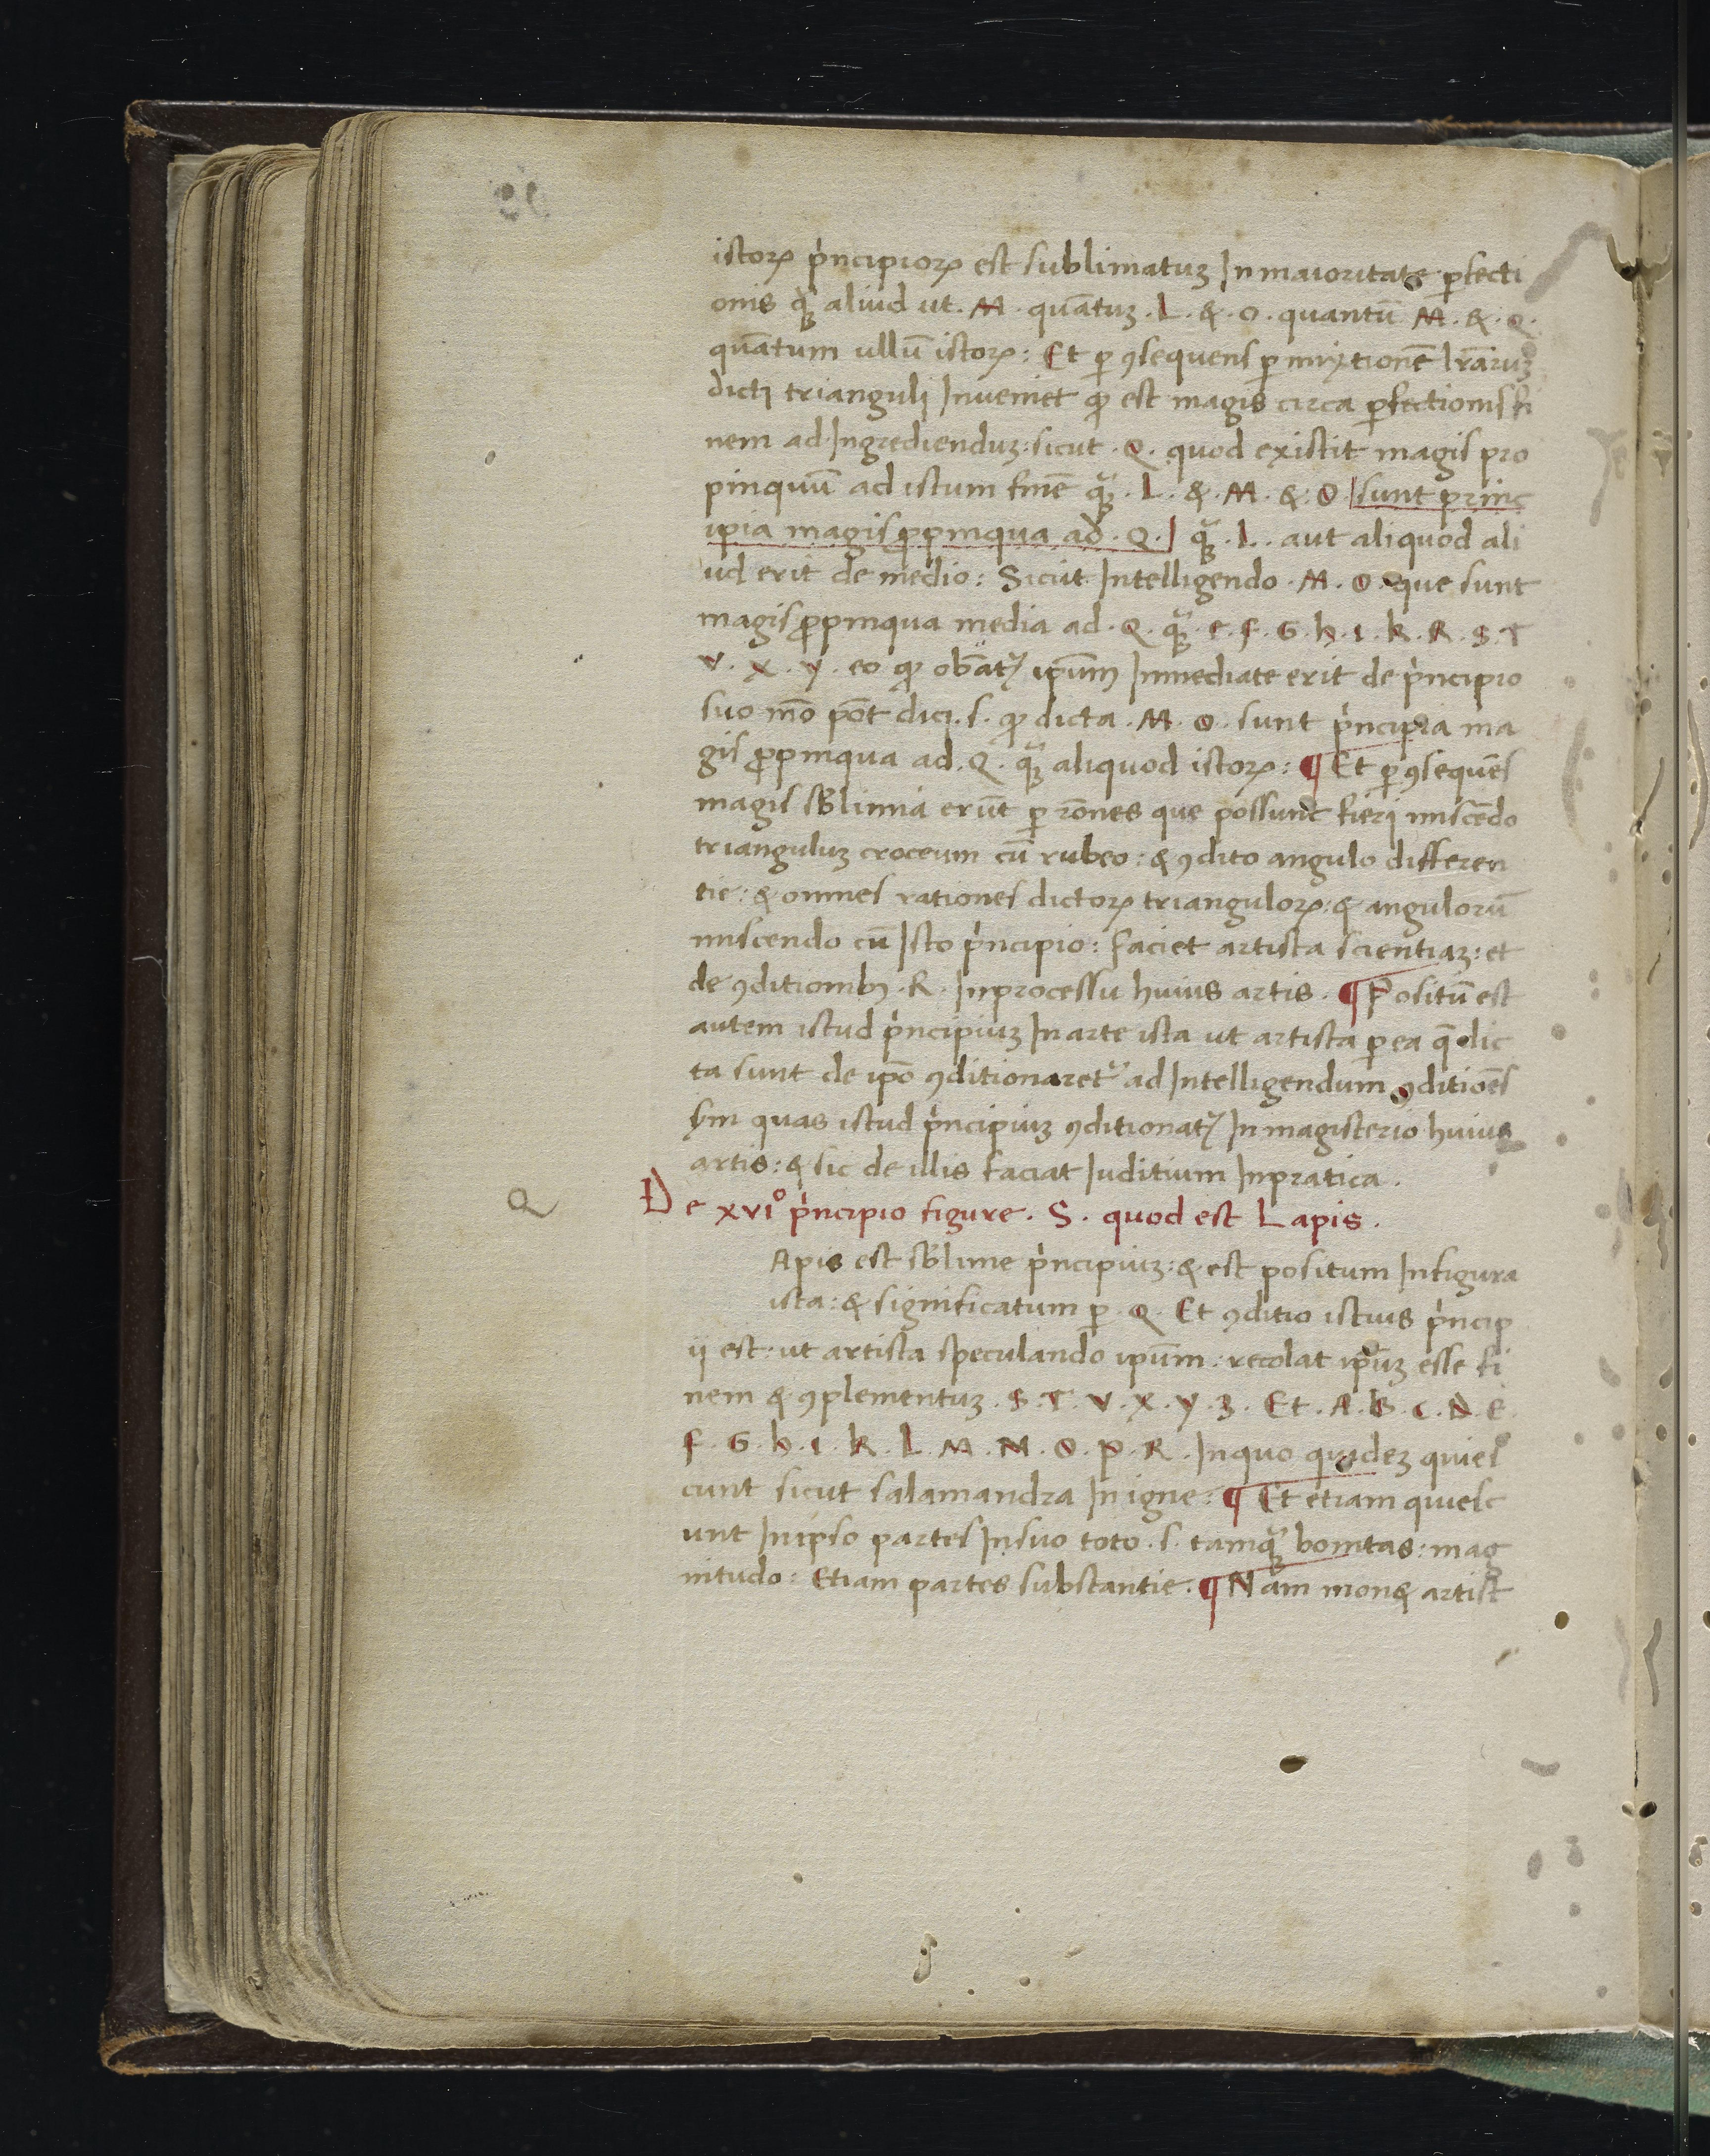 istoꝝ p̍ncipioꝝ est sublimatuꝫ In maioritate ꝑfecti
onis qͣꝫ aliud ut . M . quātuꝫ . L . & . O . quantū M . & . Q .
quātum ullū istoꝝ : Et ꝑ ꝯsequens ꝑ mixtionē lr̄aruꝫ
dicti trianguli Inveniet ꝙ est magis circa ꝑfectionis fi
nem ad Ingredienduꝫ : sicut . Q . quod existit magis pro
pinquū ad istum finē qͣꝫ . L . & . M . & . O . sunt princ
ipia magis ꝓpinqua ad . Q . qͣꝫ . L . aut aliquod ali
ud erit de medio : Sicut Intelligendo . M . O . que sunt
magis ꝓpinqua media ad . Q . qͣꝫ . E . F . G . h . I . K . R . S . T
V . X . Y . eo ꝙ obāt᷑ ipsum̄ Inmediate erit de p̍ncipio
suo mō pōt dici . s . ꝙ dicta . M . O . sunt p̍ncipia ma
gis ꝓpinqua ad . Q . qͣꝫ aliquod istoꝝ : ¶ Et ꝑ ꝯsequēs
magis sb̄limia erūt ꝑ rōnes que possunt fieri miscēdo
trianguluꝫ croceum cū rubeo : & ꝯdito angulo differen
tie : & omnes rationes dictoꝝ trianguloꝝ : & angulorū
miscendo cū Isto p̍ncipio : faciet artista scientiaꝫ : et
de ꝯditionibꝫ . R . Inprocessu huius artis . ¶ Positū est
autem istud p̍ncipiuꝫ In arte ista ut artista ꝑ ea q̄ dic
ta sunt de ipō ꝯditionaret᷑ ad Intelligendum ꝯditiōēs
sm̄ quas istud p̍ncipiuꝫ ꝯditionat᷑ In magisterio huius
artis : & sic de illis faciat Iuditium Inpratica .
Q
De xvi° p̍ncipio figure . S . quod est Lapis .
Apis est sb̄lime p̍ncipiuꝫ : & est positum In figura
ista : & significatum ꝑ . Q . Et ꝯditio istius p̍ncip
ij est : ut artista speculando ipūm : recolat ipūꝫ esse fi
nem & ꝯplementuꝫ . S . T . V . X . Y . Z . Et . A . B . C . D . E
F . G . h . I . K . L . M . N . O . P . R . In quo quideꝫ quies
cunt sicut salamandra In igne : ¶ Et etiam quiesc
unt In ipso partes In suo toto . s . tamqͣꝫ bonitas : mag
nitudo : Etiam partes substantie . ¶ Nam mon& artist